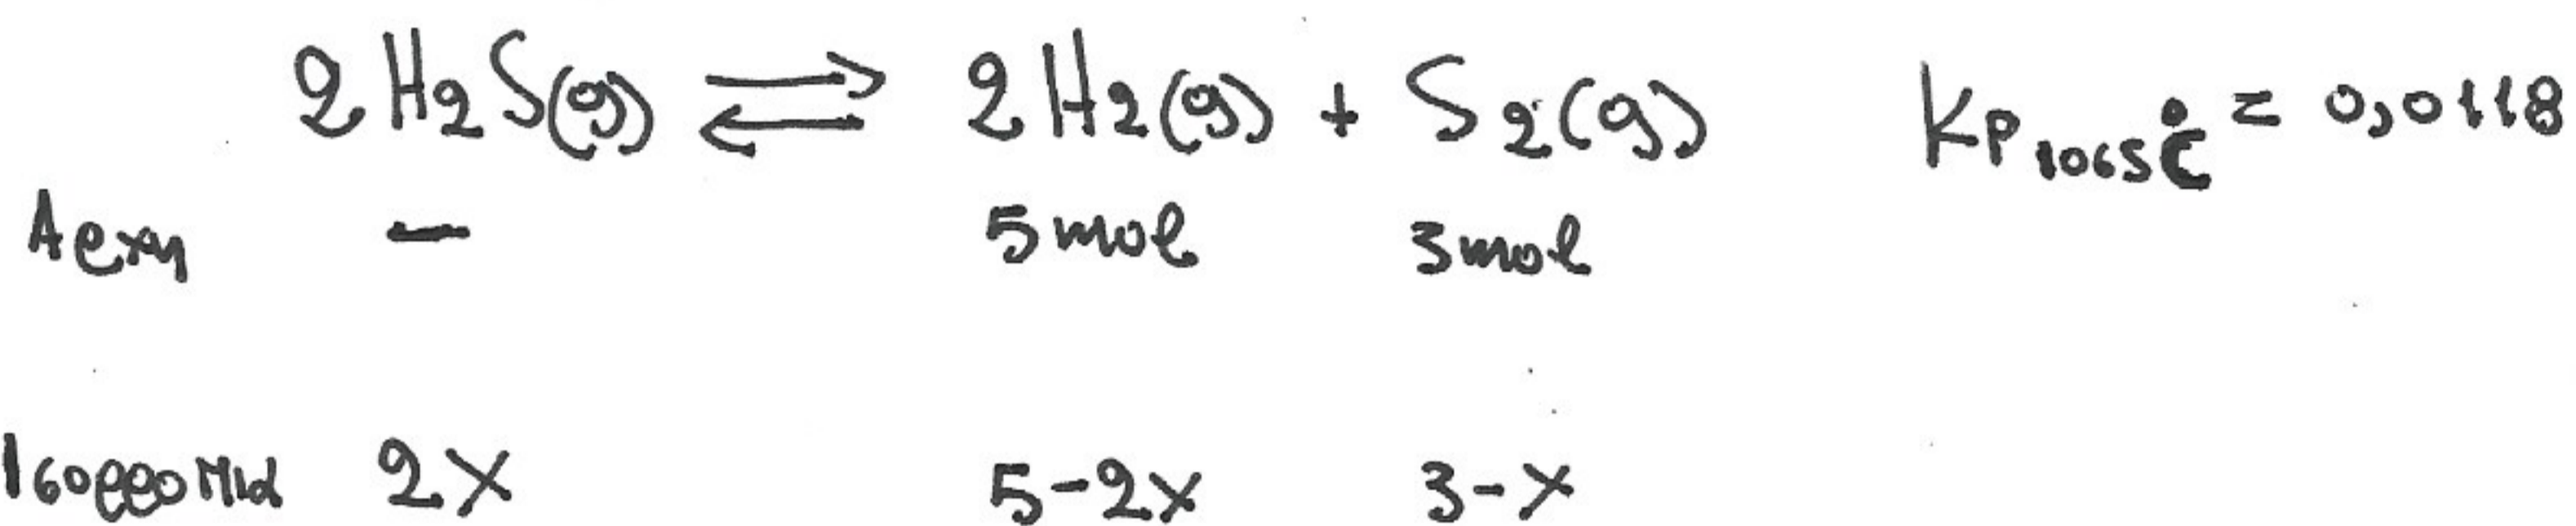 2H₂S(g) ⇌ 2H₂(g) + S₂(g) Kp₁₀₆₅°C = 0,0118
Αρχη — 5mol 3mol
Ισορροπια 2x 5-2x 3-x